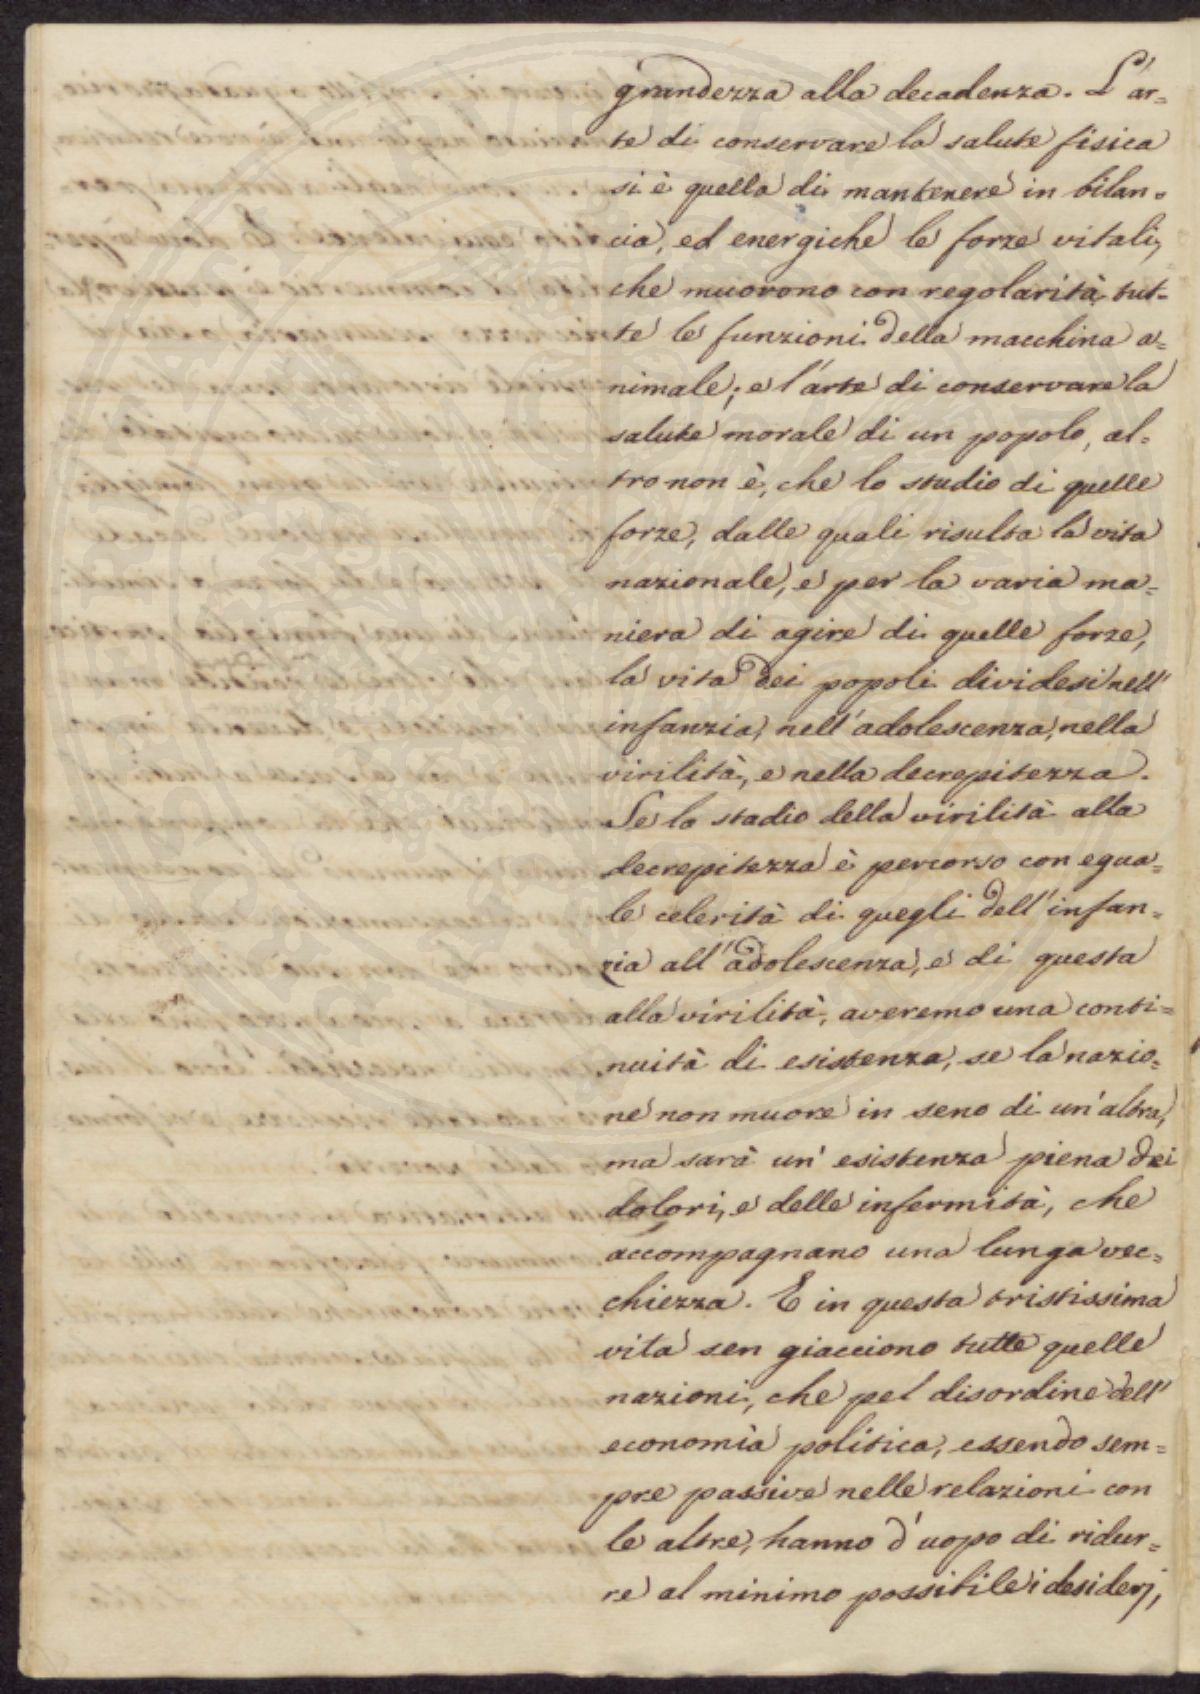 grandezza alla decadenza. L'ar=
te di conservare la salute fisica
si è quella di mantenere in bilan=
cia, ed energiche le forze vitali,
che muovono con regolarità tut=
te le funzioni della macchina a=
nimale; e l'arte di conservare la
salute morale di un popolo, al=
tro non è, che lo studio di quelle
forze, dalle quali risulta la vita
nazionale, e per la varia ma=
niera di agire di quelle forze,
la vita dei popoli dividesi nell'
infanzia, nell'adolescenza, nella
virilità, e nella decrepitezza.
Se lo stadio della virilità alla
decrepitezza è percorso con egua=
le celerità di quegli dell'infan=
zia all'adolescenza, e di questa
alla virilità, averemo una conti=
nuità di esistenza, se la nazio=
ne non muore in seno di un'altra,
ma sarà un' esistenza piena dei
dolori, e delle infermità, che
accompagnano una lunga vec=
chiezza. E in questa tristissima
vita sen giacciono tutte quelle
nazioni, che pel disordine dell'
economia politica, essendo sem=
pre passive nelle relazioni con
le altre, hanno d'uopo di ridur=
re al minimo possibile i desiderj,